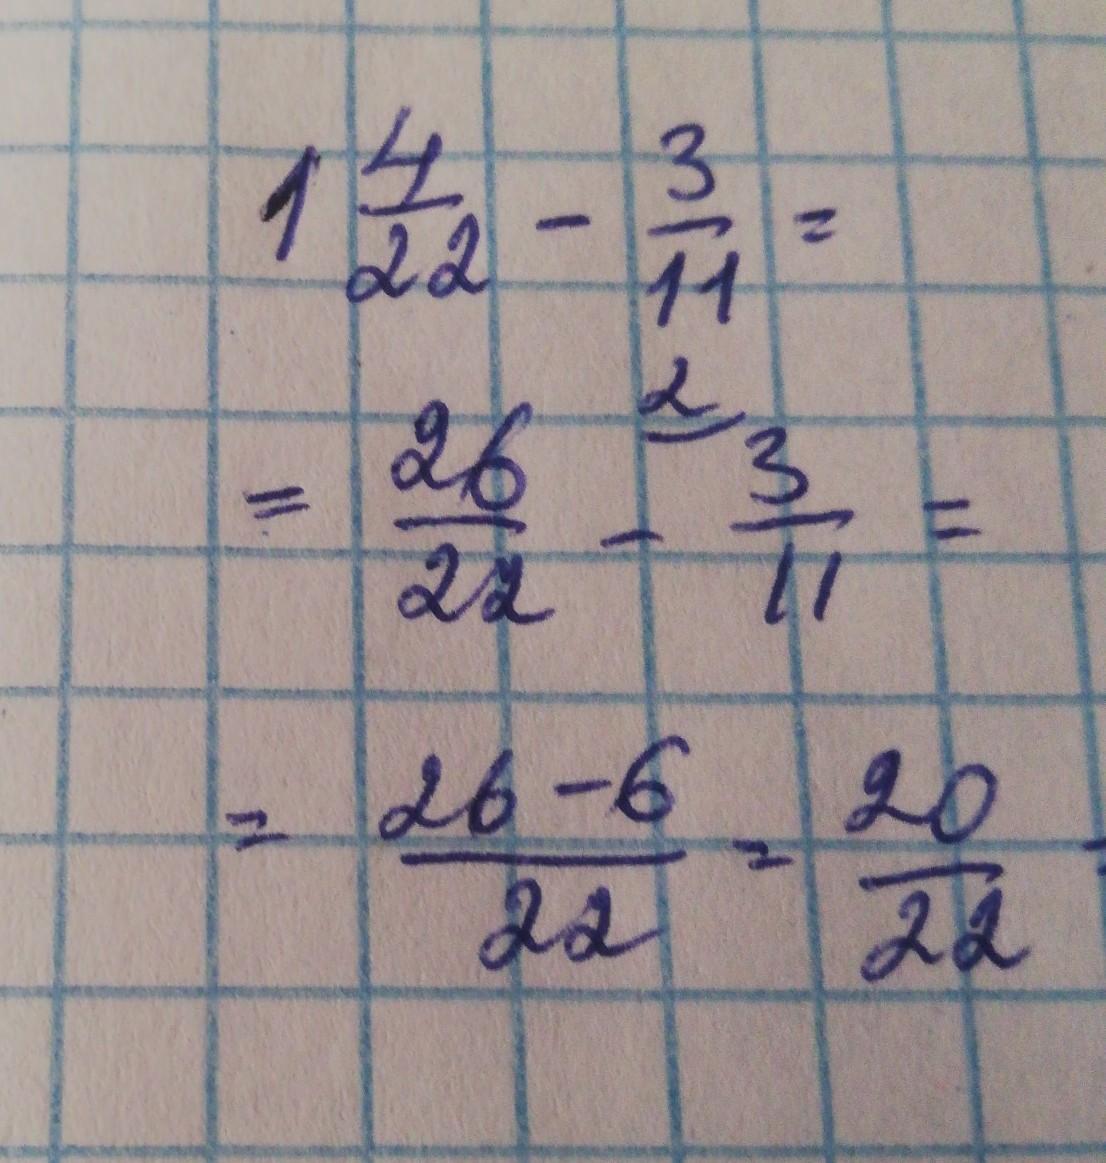 1 4/22 - 3/11 =
= 26/22 - 2) 3/11 =
= 26-6/22 = 20/22 =